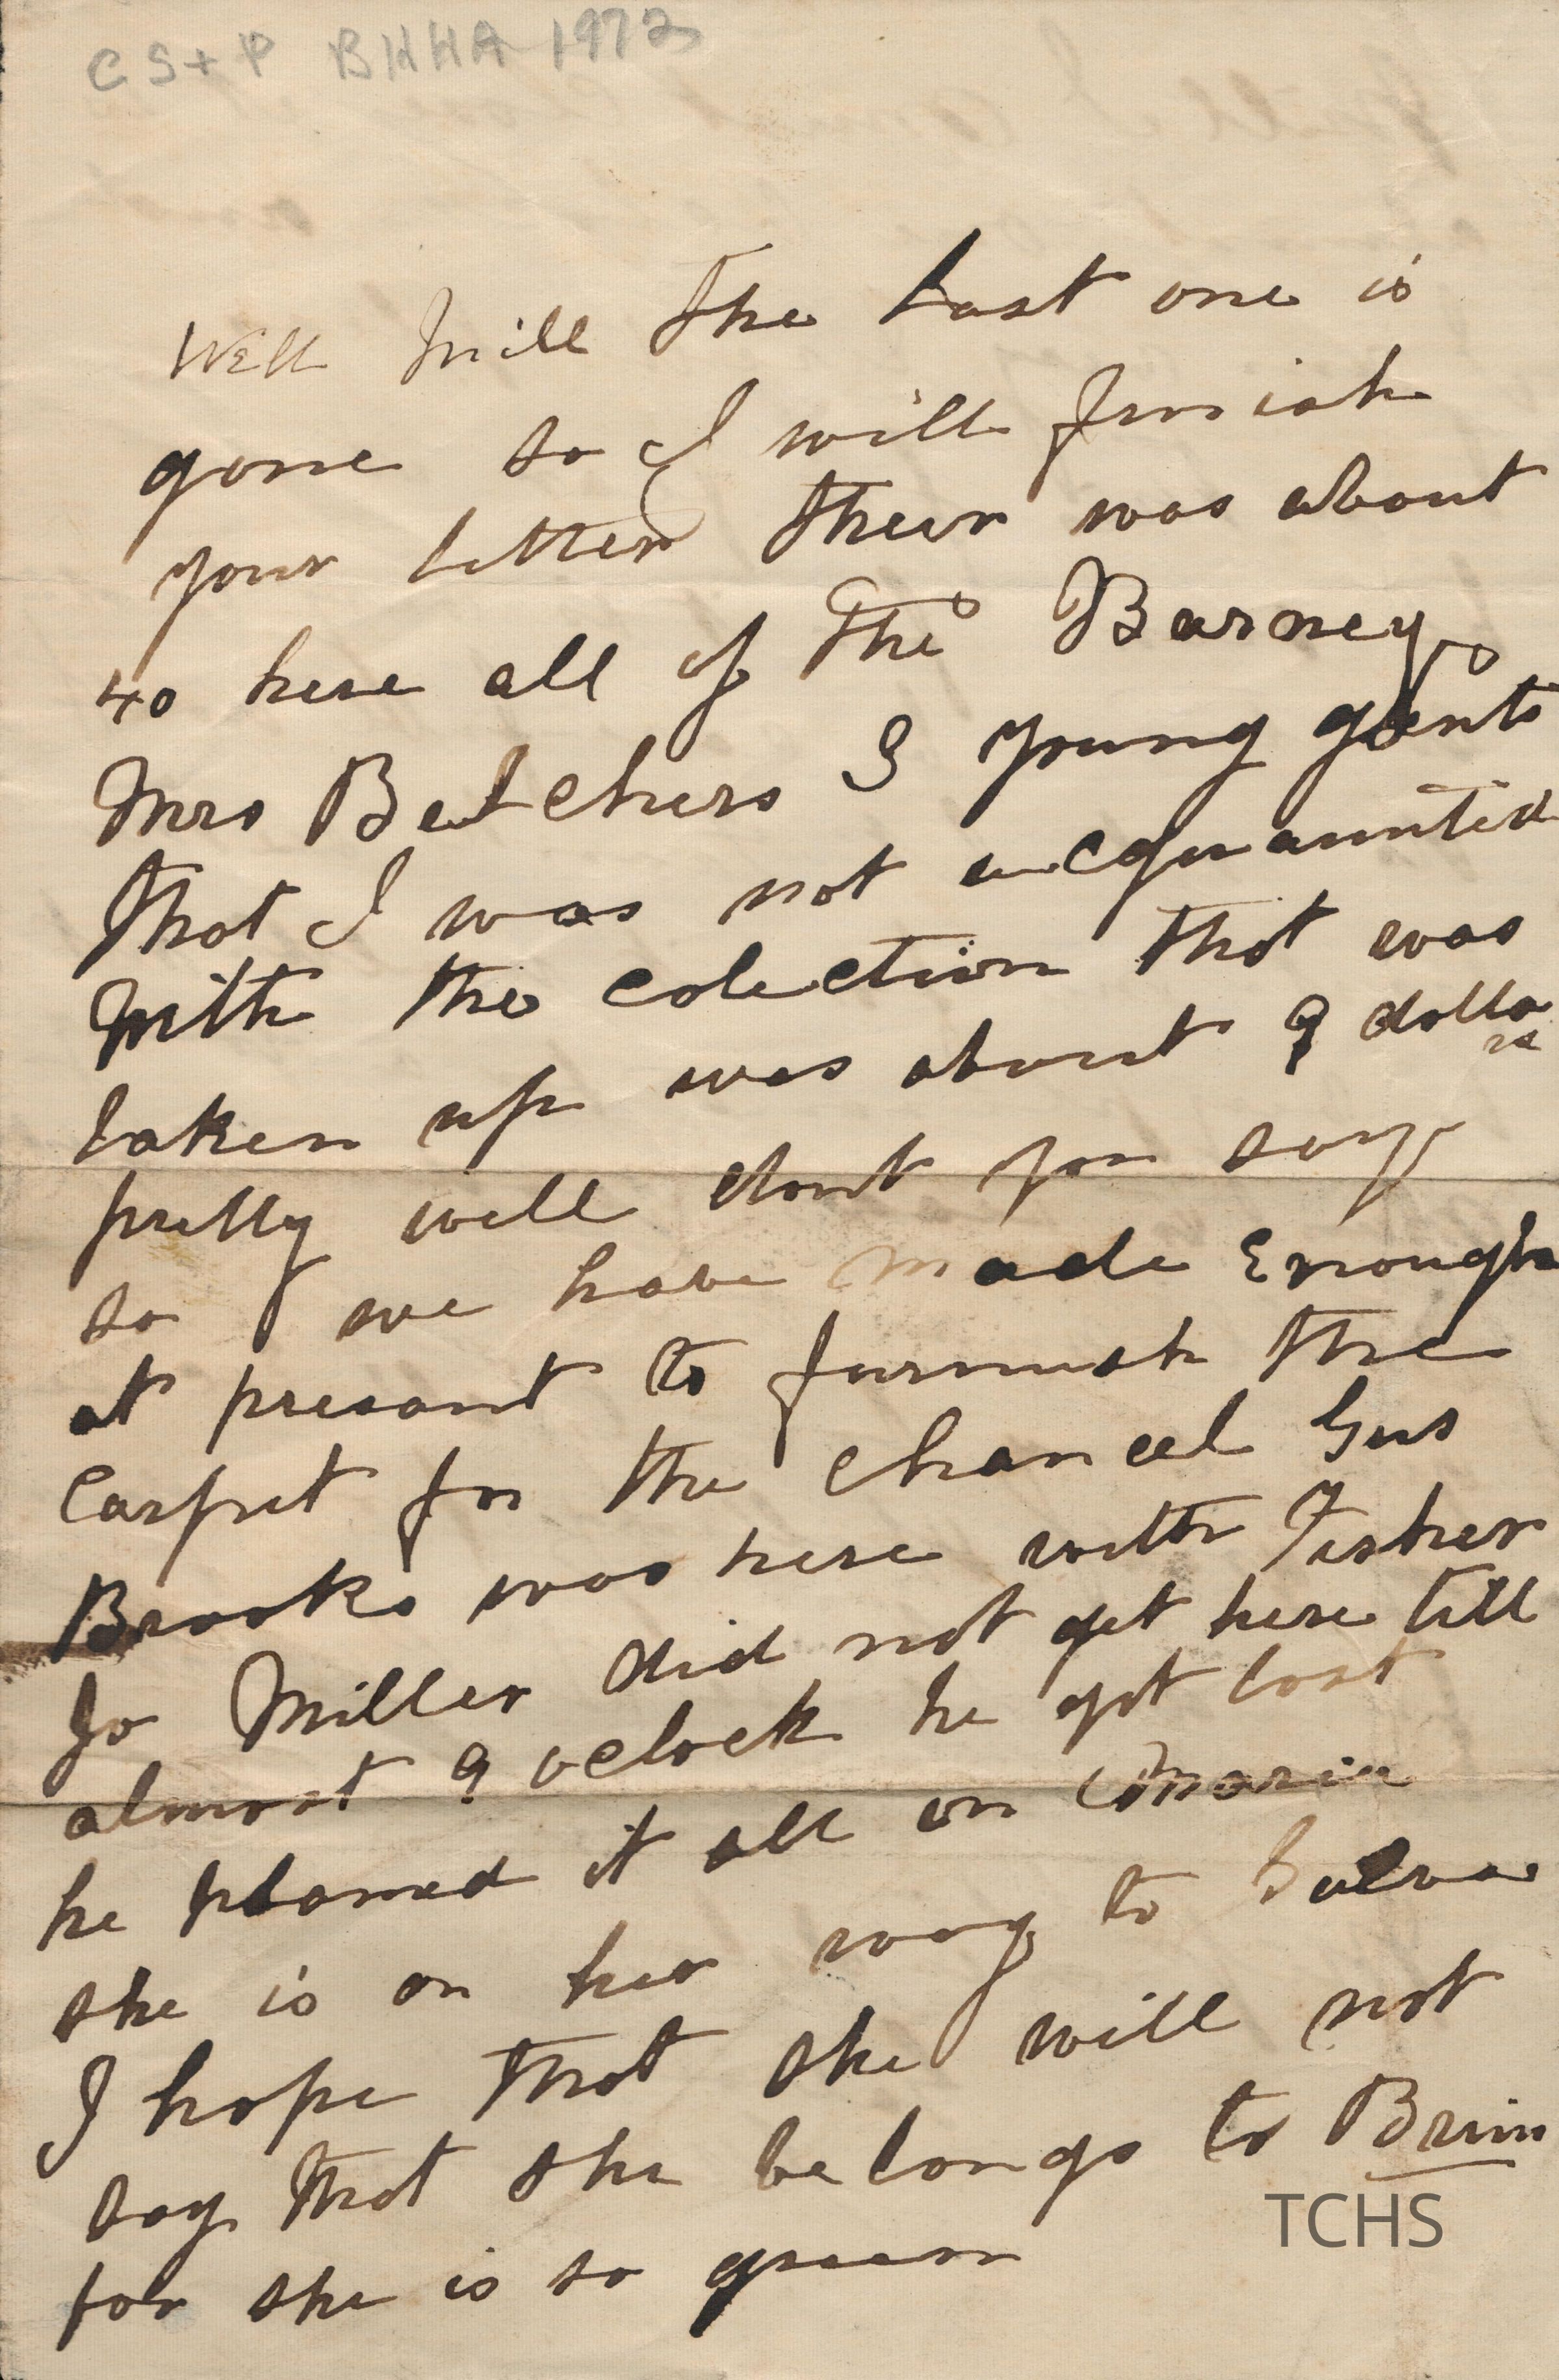 CS+P BHHA 1972
Well Mill the last one is
gone so I will finish
your letter their was about
40 here all of the Barneys
Mrs Belchers 3 young gents
that I was not acquainted
with the colection that was
taken up was about 9 dollars
pretty well dont you say
so we have made Enough
at presant to furnish the
Carpet for the chancel Gus
Brooks was here with Fisher
Jo Miller did not get here till
almost 9 oclock he got lost
he planed it all on
she is on her way to
I hope that she will not
say that she belongs to Brim
for she is so green
TCHS